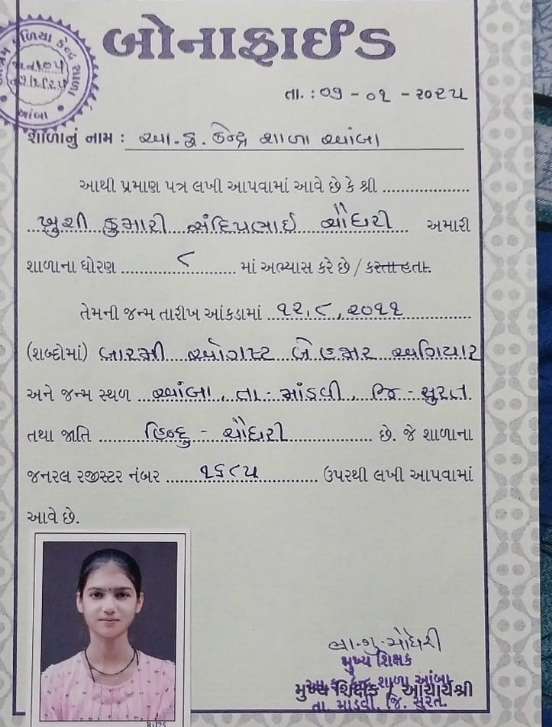 બોનાફાઈડ
તા. : ૦૧ - ૦૧ - ૨૦૨૫
શાળાનું નામ : આ. કુ. કેન્દ્ર શાળા આંબા
આથી પ્રમાણ પત્ર લખી આપવામાં આવે છે કે શ્રી ....................
ખુશી કુમારી સંદિપભાઈ ચૌધરી અમારી
શાળાના ધોરણ ૮ માં અભ્યાસ કરે છે / કરતા હતા.
તેમની જન્મ તારીખ આંકડામાં ૧૨, ૮, ૨૦૧૧
(શબ્દોમાં) બારમી ઓગસ્ટ બે હજાર અગિયાર
અને જન્મ સ્થળ આંબા, તા- માંડવી, જિ - સુરત
તથા જાતિ હિન્દુ - ચૌધરી છે. જે શાળાના
જનરલ રજીસ્ટર નંબર ૧૬૮૫ ઉપરથી લખી આપવામાં
આવે છે.
મુખ્ય શિક્ષક
મુખ્ય શિક્ષક / આચાર્યશ્રી
શાળા આંબા
તા. માંડવી, જિ. સુરત.